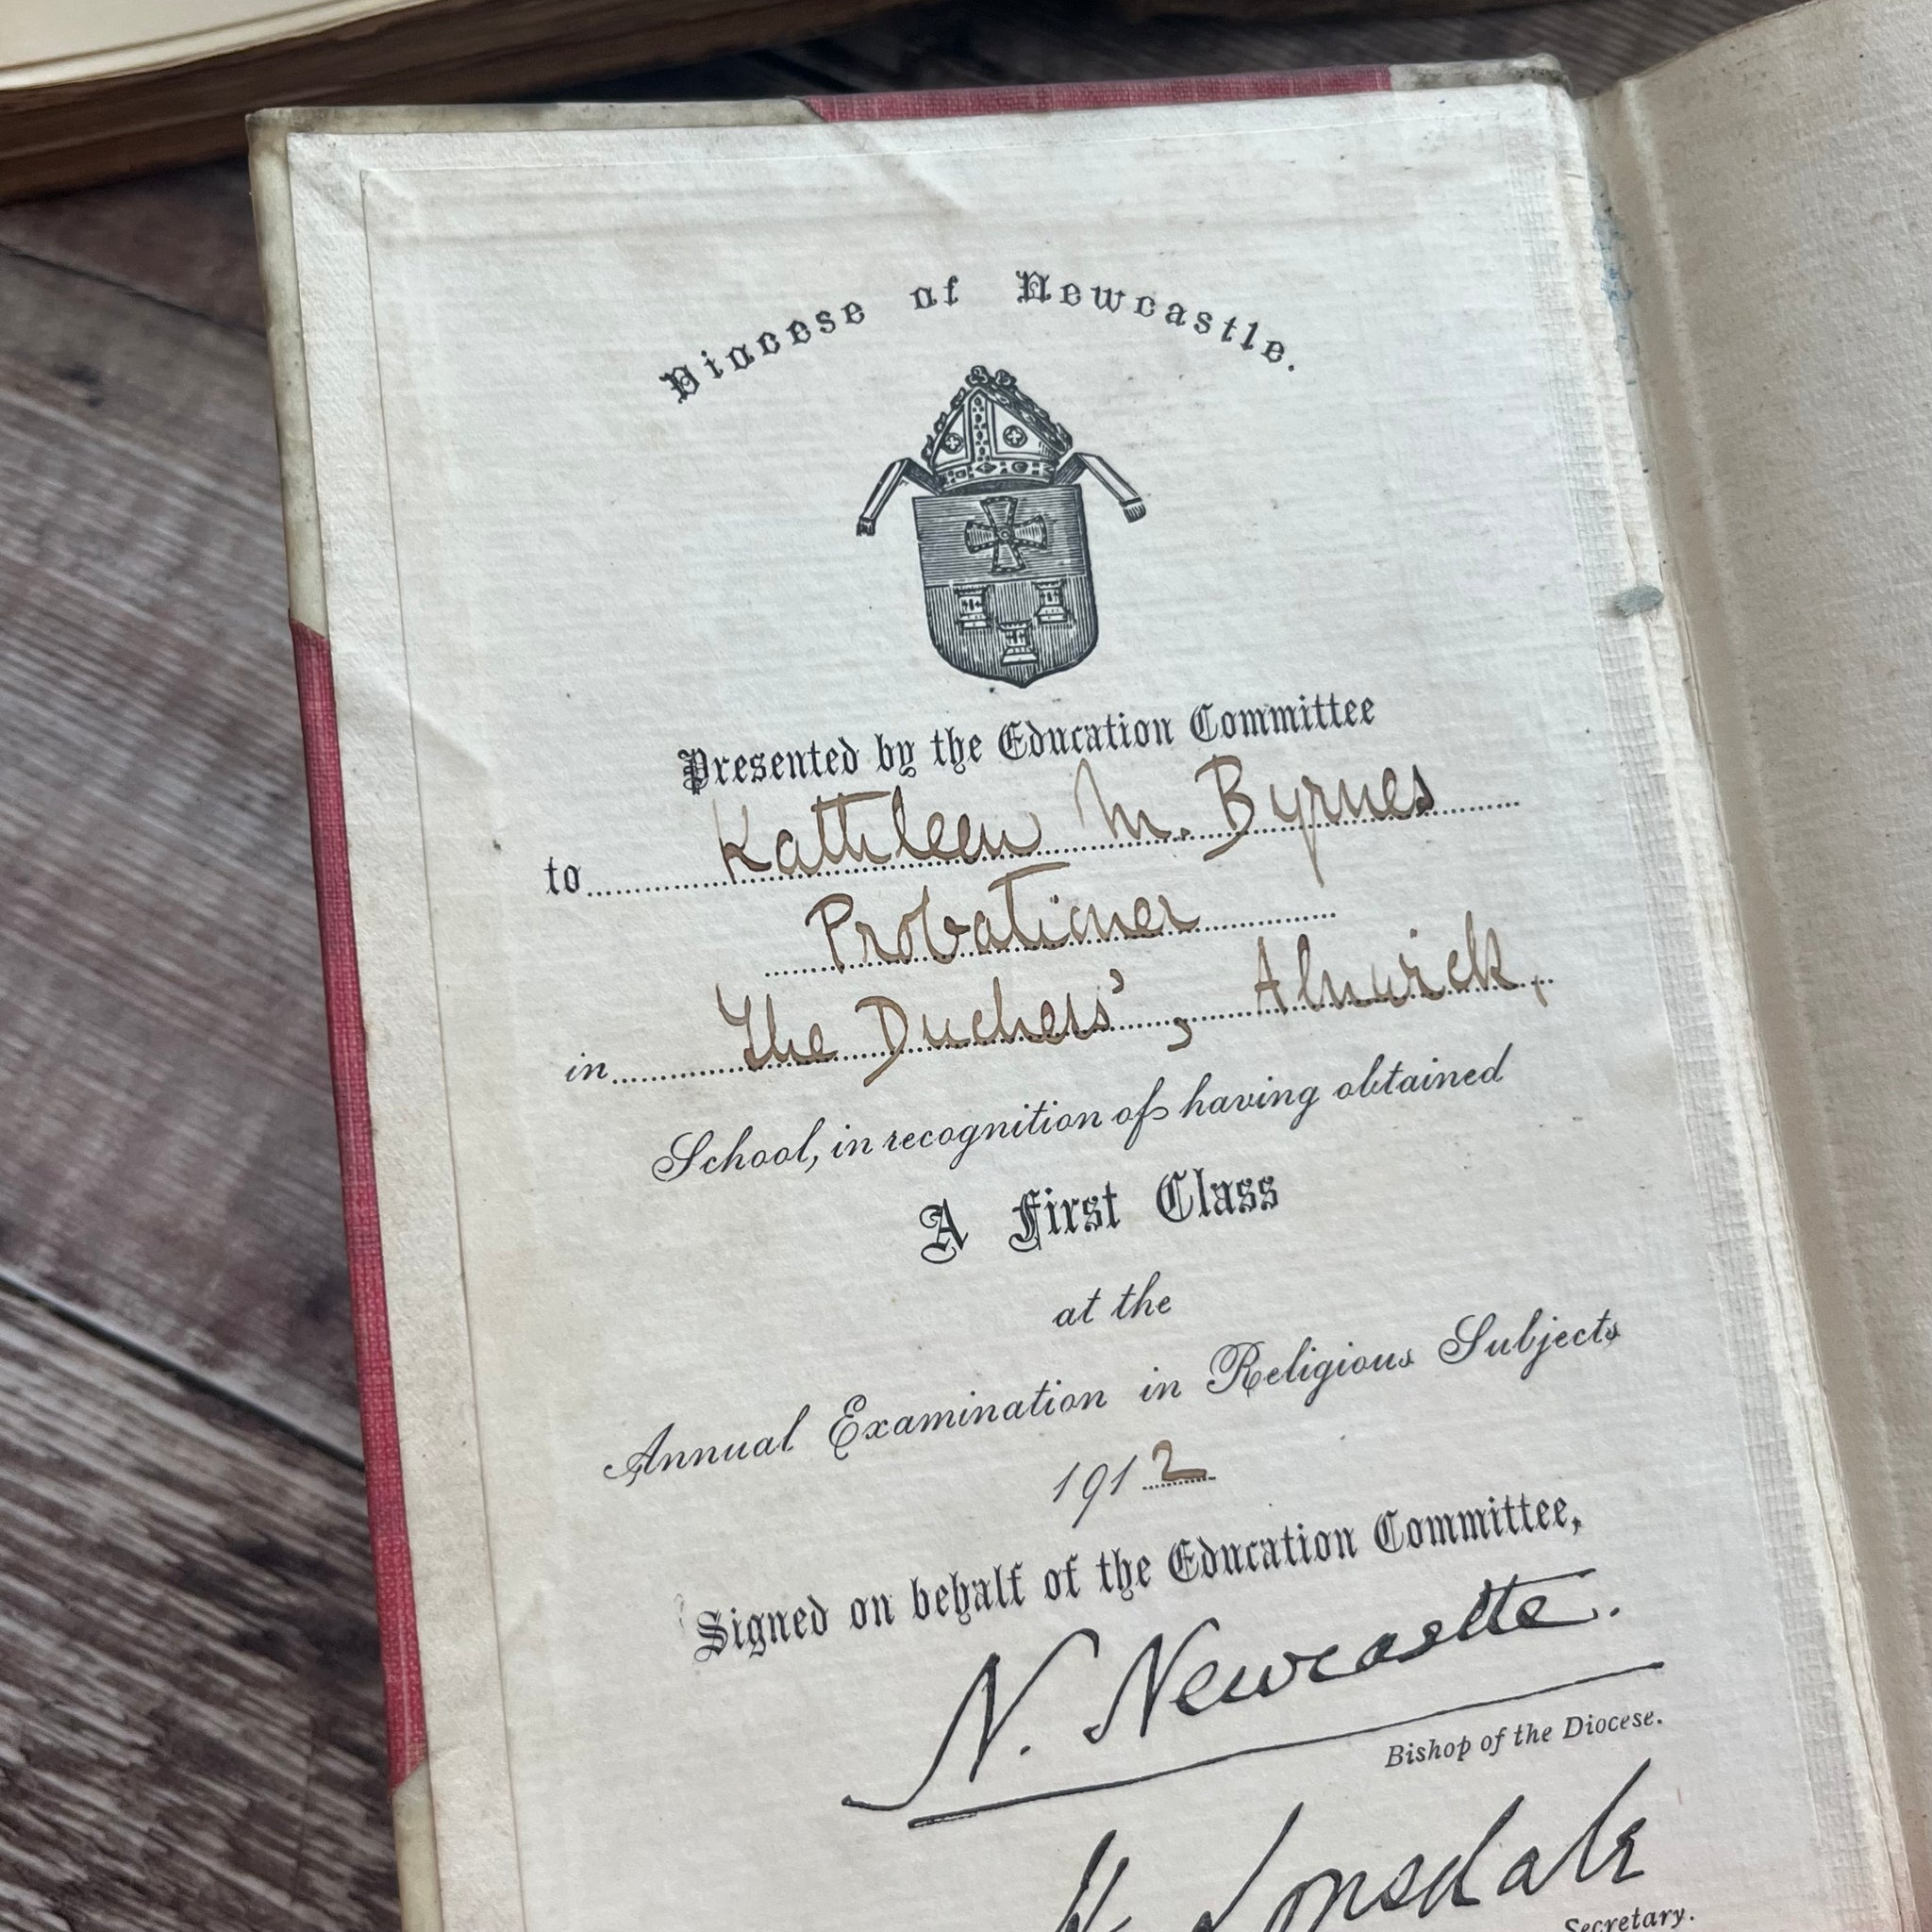 Diocese of Newcastle.
Presented by the Education Committee
to Kathleen M. Byrnes
Probationer
in The Duchess', Alnwick,
School, in recognition of having obtained
A First Class
at the
Annual Examination in Religious Subjects
1912
Signed on behalf of the Education Committee,
N. Newcastle.
Bishop of the Diocese.
Lonsdale
Secretary.